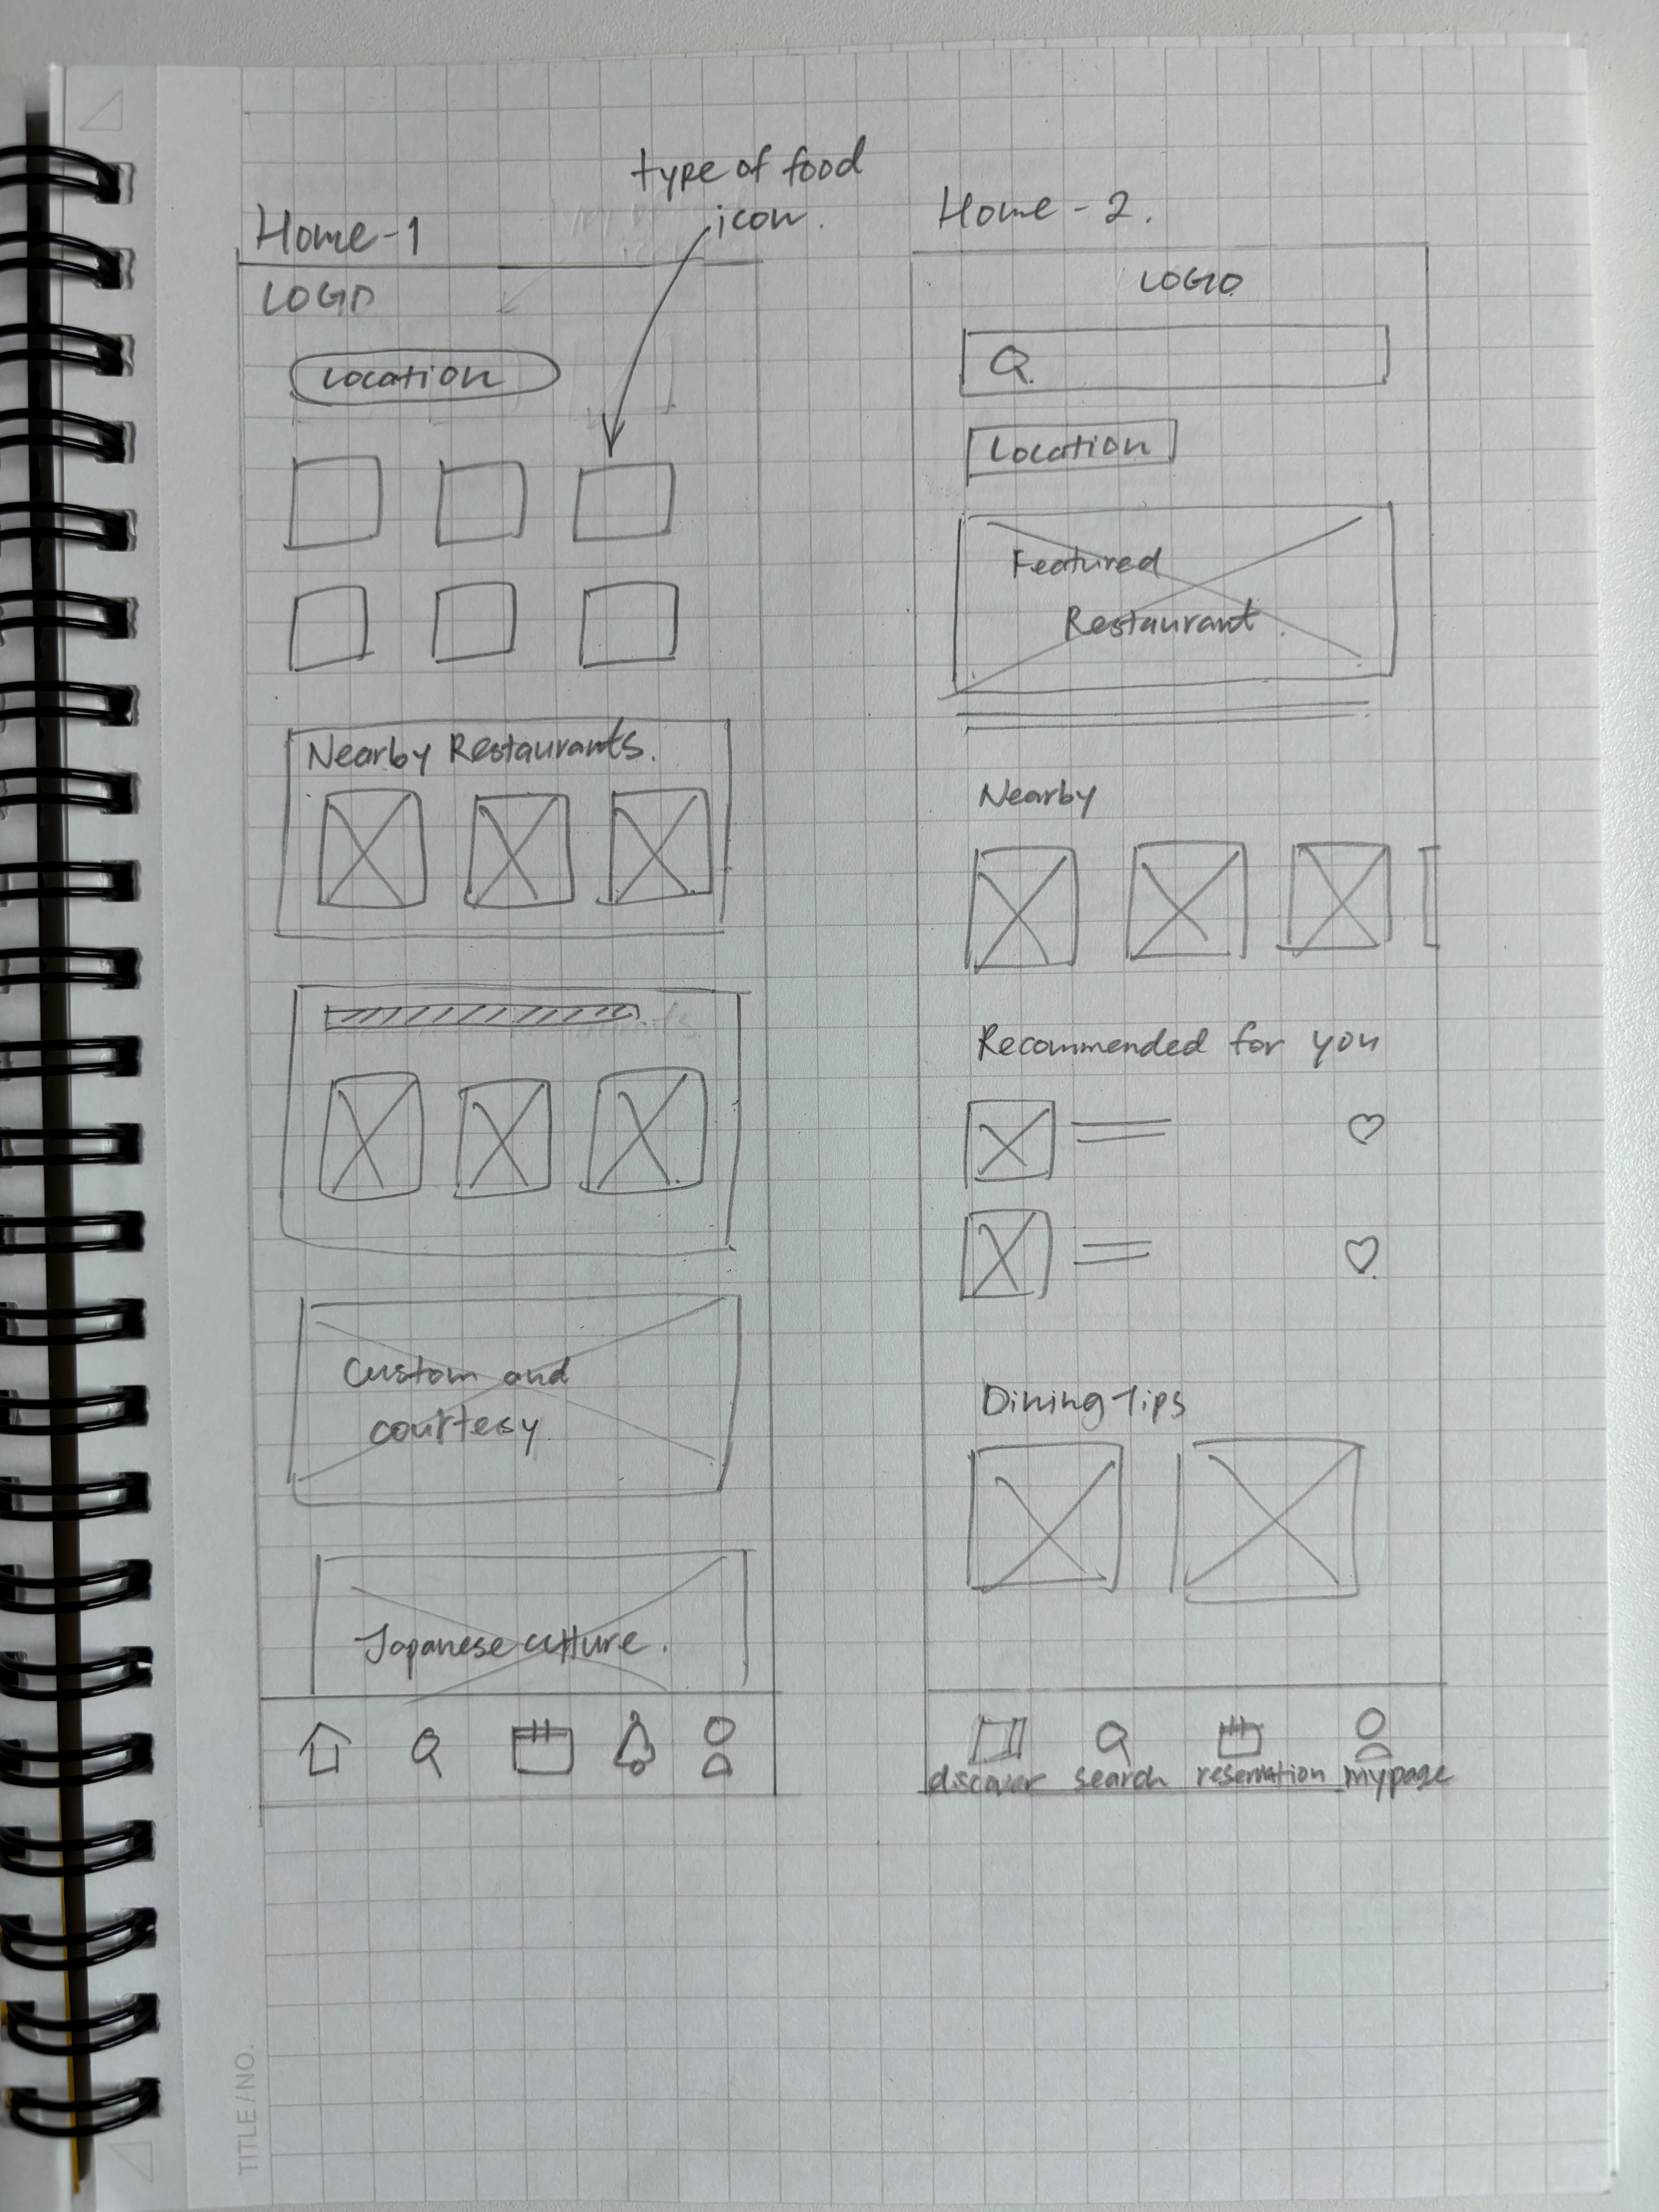 type of food
icon.
Home-1
LOGO
Location
Nearby Restaurants.
Custom and
courtesy
Japanese culture.
Home-2.
LOGO
Location
Featured
Restaurant.
Nearby
Recommended for you
Dining tips
discover search reservation mypage
TITLE / NO.